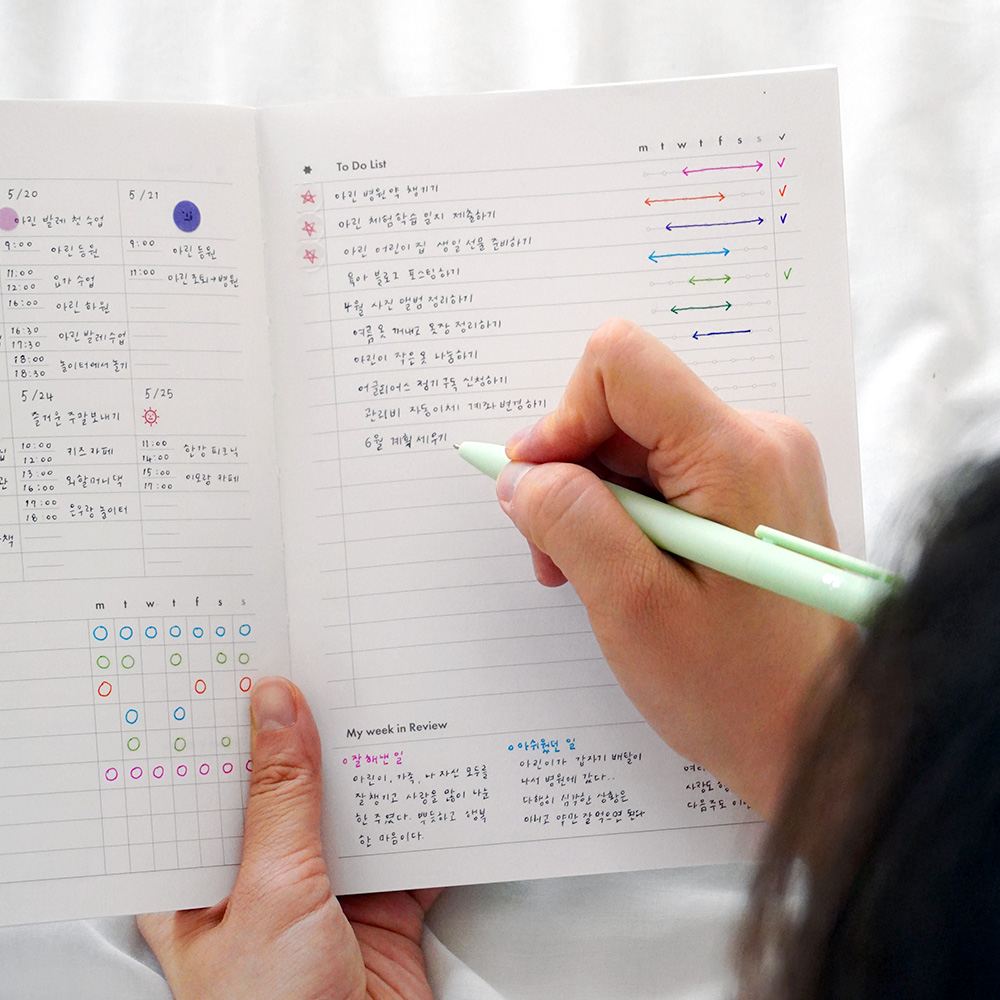 5/20
5/21
아린 발레 첫 수업
9:00 아린 등원
9:00 아린 등원
11:00
12:00 요가 수업
11:00 아린 조퇴→병원
16:00 아린 하원
16:30
17:30 아린 발레 수업
18:00
18:30 놀이터에서 놀기
5/24
5/25
즐거운 주말보내기
10:00
12:00 키즈카페
11:00
14:00 한강 피크닉
13:00
16:00 외할머니댁
15:00
17:00 이모랑 카페
17:00
18:00 은우랑 놀이터
m t w t f s s
To Do List
m t w t f s s ✓
아린 병원약 챙기기
아린 체험학습 일지 제출하기
아린 어린이집 생일 선물 준비하기
육아 블로그 포스팅하기
4월 사진 앨범 정리하기
여름 옷 꺼내고 옷장 정리하기
아린이 작은 옷 나눔하기
어글리어스 정기구독 신청하기
관리비 자동이체 계좌변경하기
6월 계획 세우기
My week in Review
잘해낸 일
아린이, 가족, 나 자신 모두를
잘 챙기고 사랑을 많이 나눈
한 주였다. 뿌듯하고 행복
한 마음이다.
아쉬웠던 일
아린이가 갑자기 배탈이
나서 병원에 갔다..
다행히 심각한 상황은
아니고 약만 잘 먹으면 된다
다음주도